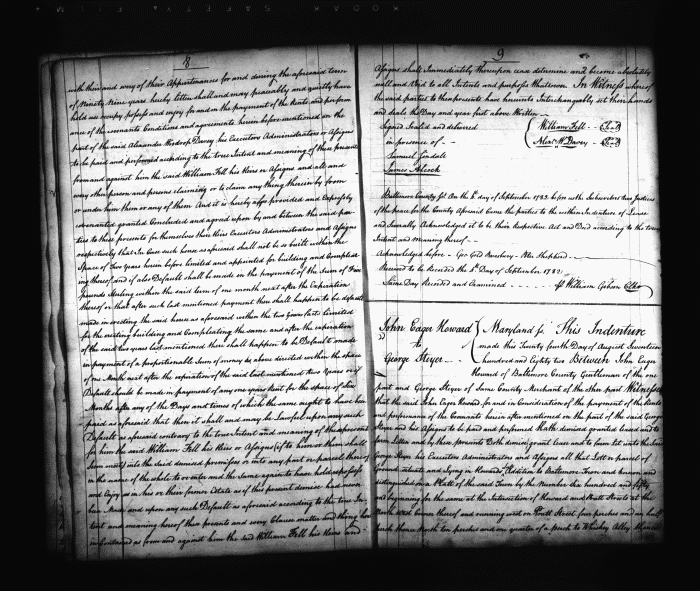 8
with them and every of their Appurtenances for and during the aforesaid term
of Ninety Nine years hereby letten shall and may peaceably and quietly have
hold use occupy possess and enjoy for and on the payment of the Rents and perform
ance of the covenants Conditions and agreements herein before mentioned on the
part of the said Alexander Woodrop Davey his Executors Administrators or Assigns
to be paid and performed according to the true Intent and meaning of these presents
from and against him the said William Fell his Heirs or Assigns and all and
every other person and persons claiming or to claim any thing therein by from
or under him them or any of them. And it is hereby also provided and Expressly
covenanted granted Concluded and agreed upon by and between the said par
ties to these presents for themselves their Heirs Executors Administrators and Assigns
respectively that In Case such house as aforesaid shall not be so built within the
Space of Two years herein before limited and appointed for building and Compleat
ing thereof and if also Default shall be made in the payment of the Sum of Five
pounds Sterling within the said term of one month next after the Expiration
thereof or that after such last mentioned payment there shall happen to be default
made in erecting the said house as aforesaid within the two years last limited
for the erecting building and Compleating the same and after the expiration
of the said two years last mentioned there shall happen to be Default made
in payment of a proportionable Sum of money as above directed within the space
of one Month next after the expiration of the said last mentioned two Years or if
Default should be made in payment of any one years Rent for the space of Six
Months after any of the Days and times of which the same ought to have been
paid as aforesaid that then it shall and may be lawful upon any such
Default as aforesaid contrary to the true Intent and meaning of these presents
for him the said William Fell his Heirs or Assigns to him or them shall
seem meet into the said demised premises or into any part or parcel thereof
in the name of the whole to enter and the Same again to have hold repossess
and Enjoy as in his or their former Estate as if this present demise had never
been Made and upon any such Default as aforesaid according to the true In
tent and meaning hereof these presents and every Clause matter and thing here
in Contained as from and against him the said William Fell his Heirs and
9
Assigns shall Immediately thereupon cease determine and become absolutely
null and Void to all Intents and purposes Whatsoever. In Witness whereof
the said parties to these presents have hereunto Interchangeably set their hands
and Seals the Day and year first above Written
Signed Sealed and delivered William Fell Seal
in presence of Alexr. W Davey Seal
Samuel Lindall
James Alcock
Baltimore County sst On the 5 day of September 1782 before us the Subscribers two Justices
of the peace for the County Aforesaid Came the parties to the within Indenture of Lease
and Severally Acknowledged it to be their Respective Act and Deed according to the true
Intent and Meaning thereof
Acknowledged before Geo Gd Presbury Wm Shepherd
Received to be Recorded the 5 Day of September 1782
Same Day Recorded and Examined William Gibson Clk
John Eager Howard Maryland ss. This Indenture
to made this Twenty fourth Day of August Seventeen
George Steyer hundred and Eighty two Between John Eager
Howard of Baltimore County Gentleman of the one
part and George Steyer of Same County Merchant of the other part Witnesseth
that the said John Eager Howard for and in Consideration of the payment of the Rents
and performance of the Covenants herein after mentioned on the part of the said George
Steyer and his Assigns to be paid and performed Hath demised granted leased and to
farm letten and by these presents Doth demise grant lease and to farm let unto the said
George Steyer his Executors Administrators and Assigns all that Lot or parcel of
Ground situate and Lying in Howards Addition to Baltimore Town and known and
distinguished in a Platt of the said Town by the Number Six hundred and fifty
and beginning for the same at the Intersection of Howard and Pratt Streets at the
North west Corner thereof and running west on Pratt Street four perches and an half
perch thence North ten perches and one quarter of a perch to Whiskey Alley thence